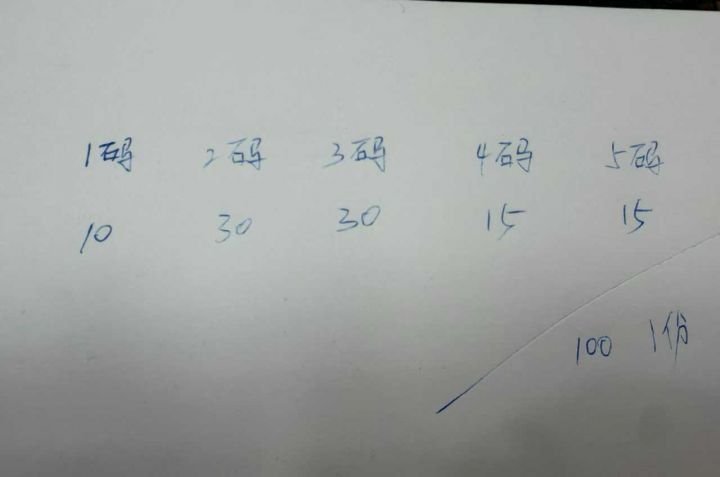 1码 2码 3码 4码 5码
10 30 30 15 15
100 1份